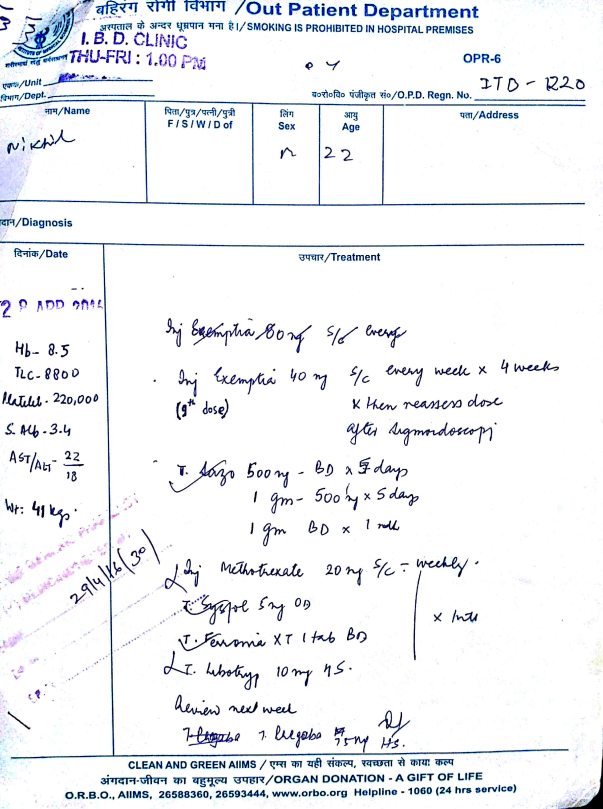 बहिरंग रोगी विभाग /Out Patient Department
अस्पताल के अन्दर धूम्रपान मना है।/SMOKING IS PROHIBITED IN HOSPITAL PREMISES
I. B. D. CLINIC
THU-FRI : 1.00 PM
OPR-6
एकक/Unit
विभाग/Dept.
ब०रो०वि० पंजीकृत सं०/O.P.D. Regn. No. ITD - 1220
नाम/Name
पिता/पुत्र/पत्नी/पुत्री
F / S / W / D of
लिंग
Sex
आयु
Age
पता/Address
Nikhil
M
22
दान/Diagnosis
दिनांक/Date
उपचार/Treatment
Inj Exemptia 80 mg S/C every
Hb- 8.5
TLC- 8800
Platelet - 220,000
S. Alb - 3.4
AST/ALT - 22/18
Wt: 41 kgs.
29/4/16 (30)
Inj Exemptia 40 mg S/C every week x 4 weeks
(9th dose) x then reassess dose
after sigmoidoscopy
T. Sazo 500 mg - BD x 5 days
1 gm - 500 mg x 5 days
1 gm BD x 1 mth
Inj Methotrexate 20 mg S/C - weekly.
T. 5 mg OD
T. Ferronia XT 1 tab BD
x 1 mth
T. Libotryp 10 mg HS.
Review next week
T. 75 mg HS.
CLEAN AND GREEN AIIMS / एम्स का यही संकल्प, स्वच्छता से काया कल्प
अंगदान-जीवन का बहुमूल्य उपहार/ORGAN DONATION - A GIFT OF LIFE
O.R.B.O., AIIMS, 26588360, 26593444, www.orbo.org Helpline - 1060 (24 hrs service)